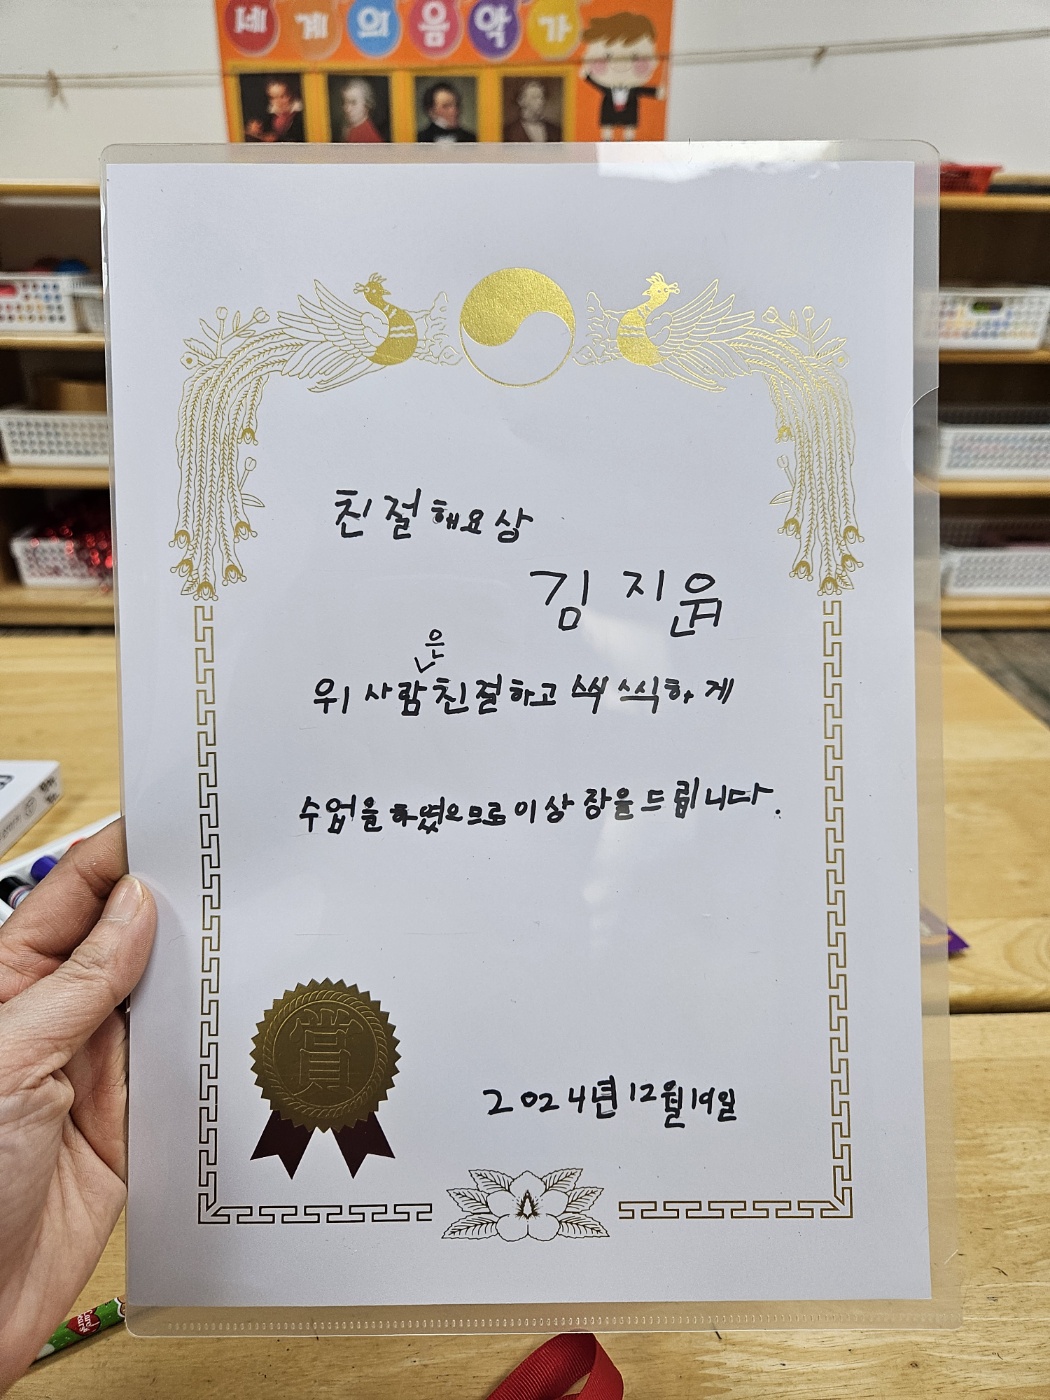 세계의음악가
친절해요상
김지윤
은
위 사람친절하고 씩씩하게
수업을 하였으므로 이 상장을 드립니다.
賞
2024년 12월 19일